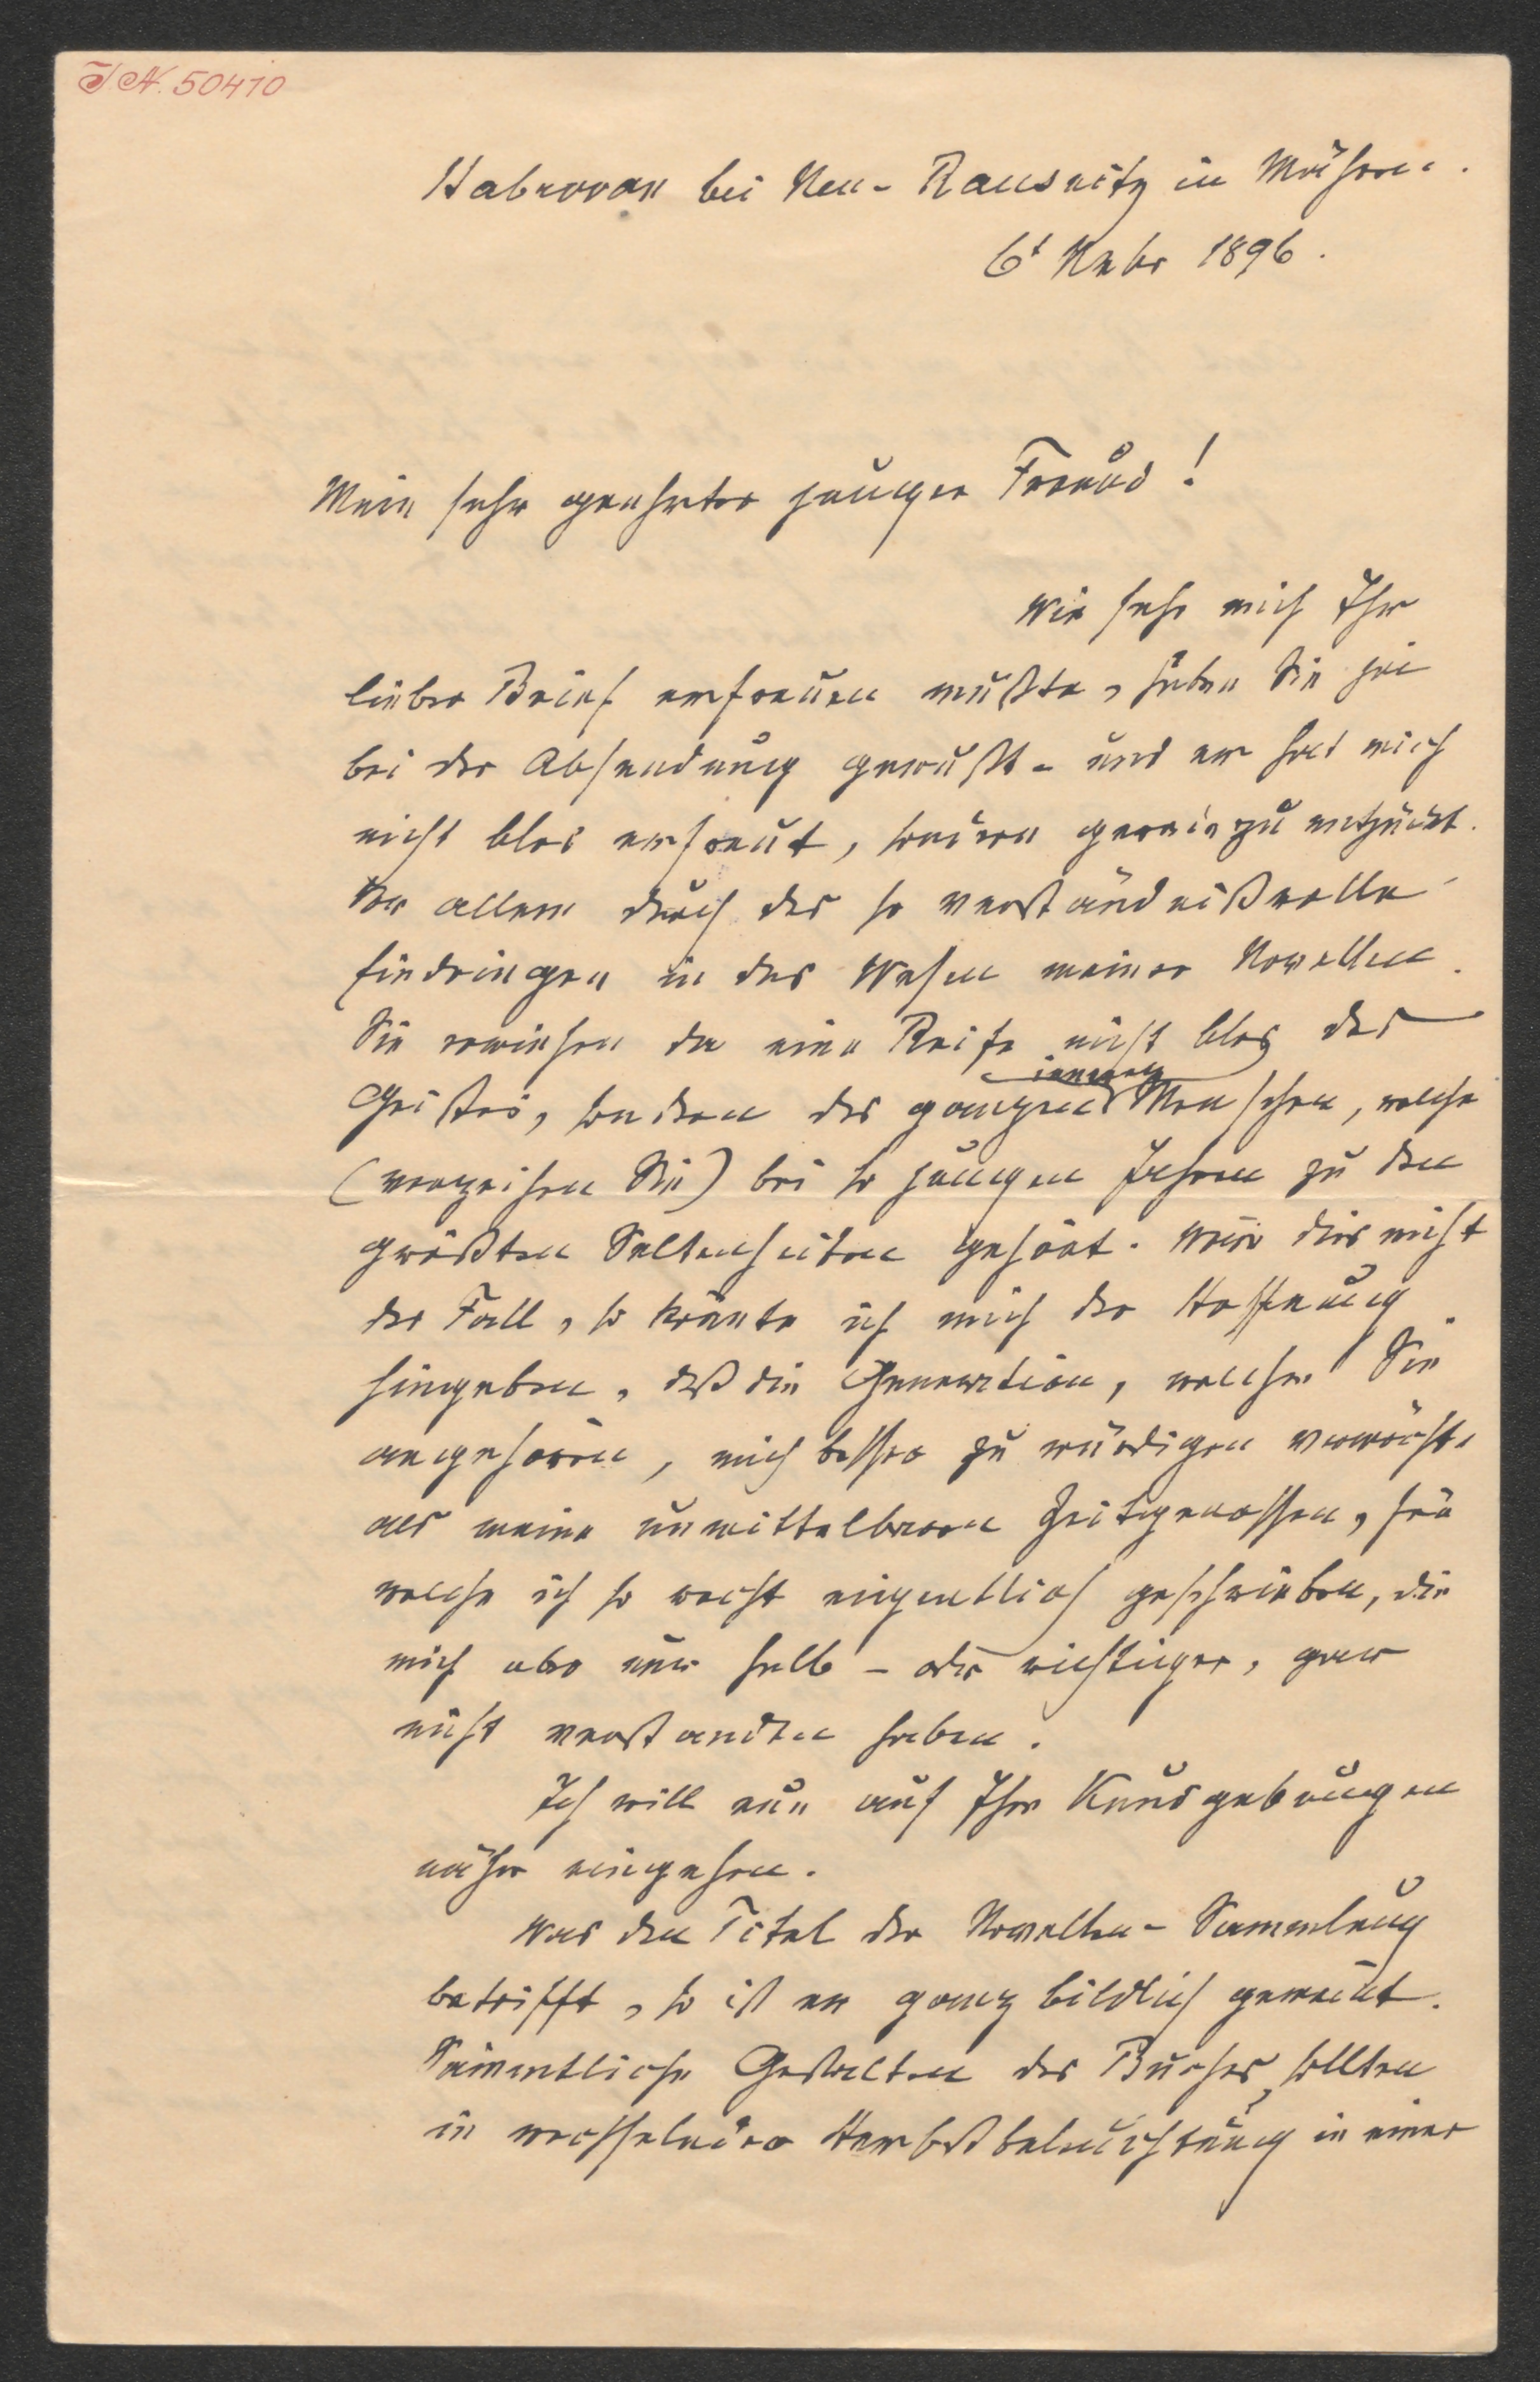 I.N. 50410
Habrovan bei Neu-Rausnitz in Mähren.
6t Nvbr 1896.
Mein sehr geehrter junger Freund!
Wie sehr mich Ihr
lieber Brief erfreuen mußte, haben Sie
bei der Absendung gewußt - und er hat mich
nicht blos erfreut, sondern geradezu entzückt.
Vor allem durch das so verständnißvolle
Eindringen in das Wesen meiner Novellen.
Sie erwiesen da eine Reife nicht blos des
Geistes, sondern des ganzen inneren Menschen, welche
(verzeihen Sie) bei so jungen Jahren zu den
größten Seltenheiten gehört. Wäre dies nicht
der Fall, so könnte ich mich der Hoffnung
hingeben, daß die Generation, welcher Sie
angehören, mich besser zu würdigen vermöchte
als meine unmittelbaren Zeitgenossen, für
welche ich so recht eigentlich geschrieben, die
mich aber nur halb - oder richtiger, gar
nicht verstanden haben.
Ich will nun auf Ihre Kundgebungen
näher eingehen.
Was den Titel der Novellen-Sammlung
betrifft, so ist er ganz bildlich gemeint.
Sämmtliche Gestalten des Buches, sollten
in wechselnder Herbstbeleuchtung in einer